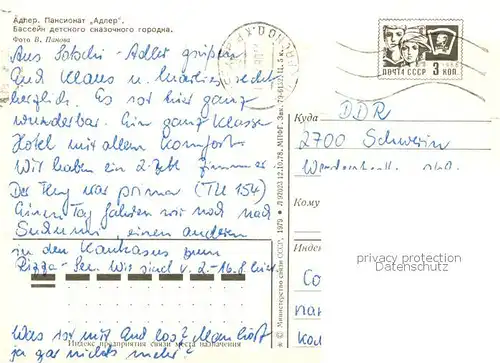 Адлер. Пансионат „Адлер".
Бассейн детского сказочного городка.
Фото В. Панова
Aus Sotschi-Adler grüßen
Gud Klaus u. Marlies recht
herzlich. Es ist hier ganz
wunderbar. Ein ganz klasse
Hotel mit allem Komfort.
Wir haben ein 2-Bett Zimmer
Der Flug war prima (TU 154)
Einen Tag fahren wir noch nach
Suchumi, einen anderen
in den Kaukasus zum
Rizza-See. Wir sind v. 2.-16.8. hier.
Was ist mit Gud los? Man hört
ja gar nichts mehr?
Индекс предприятия связи места назначения
© Министерство связи СССР, 1979
З 92023 12.10.78. МПФГ. Зак.
ПОЧТА СССР
3 КОП.
Куда
DDR
2700 Schwerin
Кому
Индекс
Со
пан
кол
privacy protection
Datenschutz